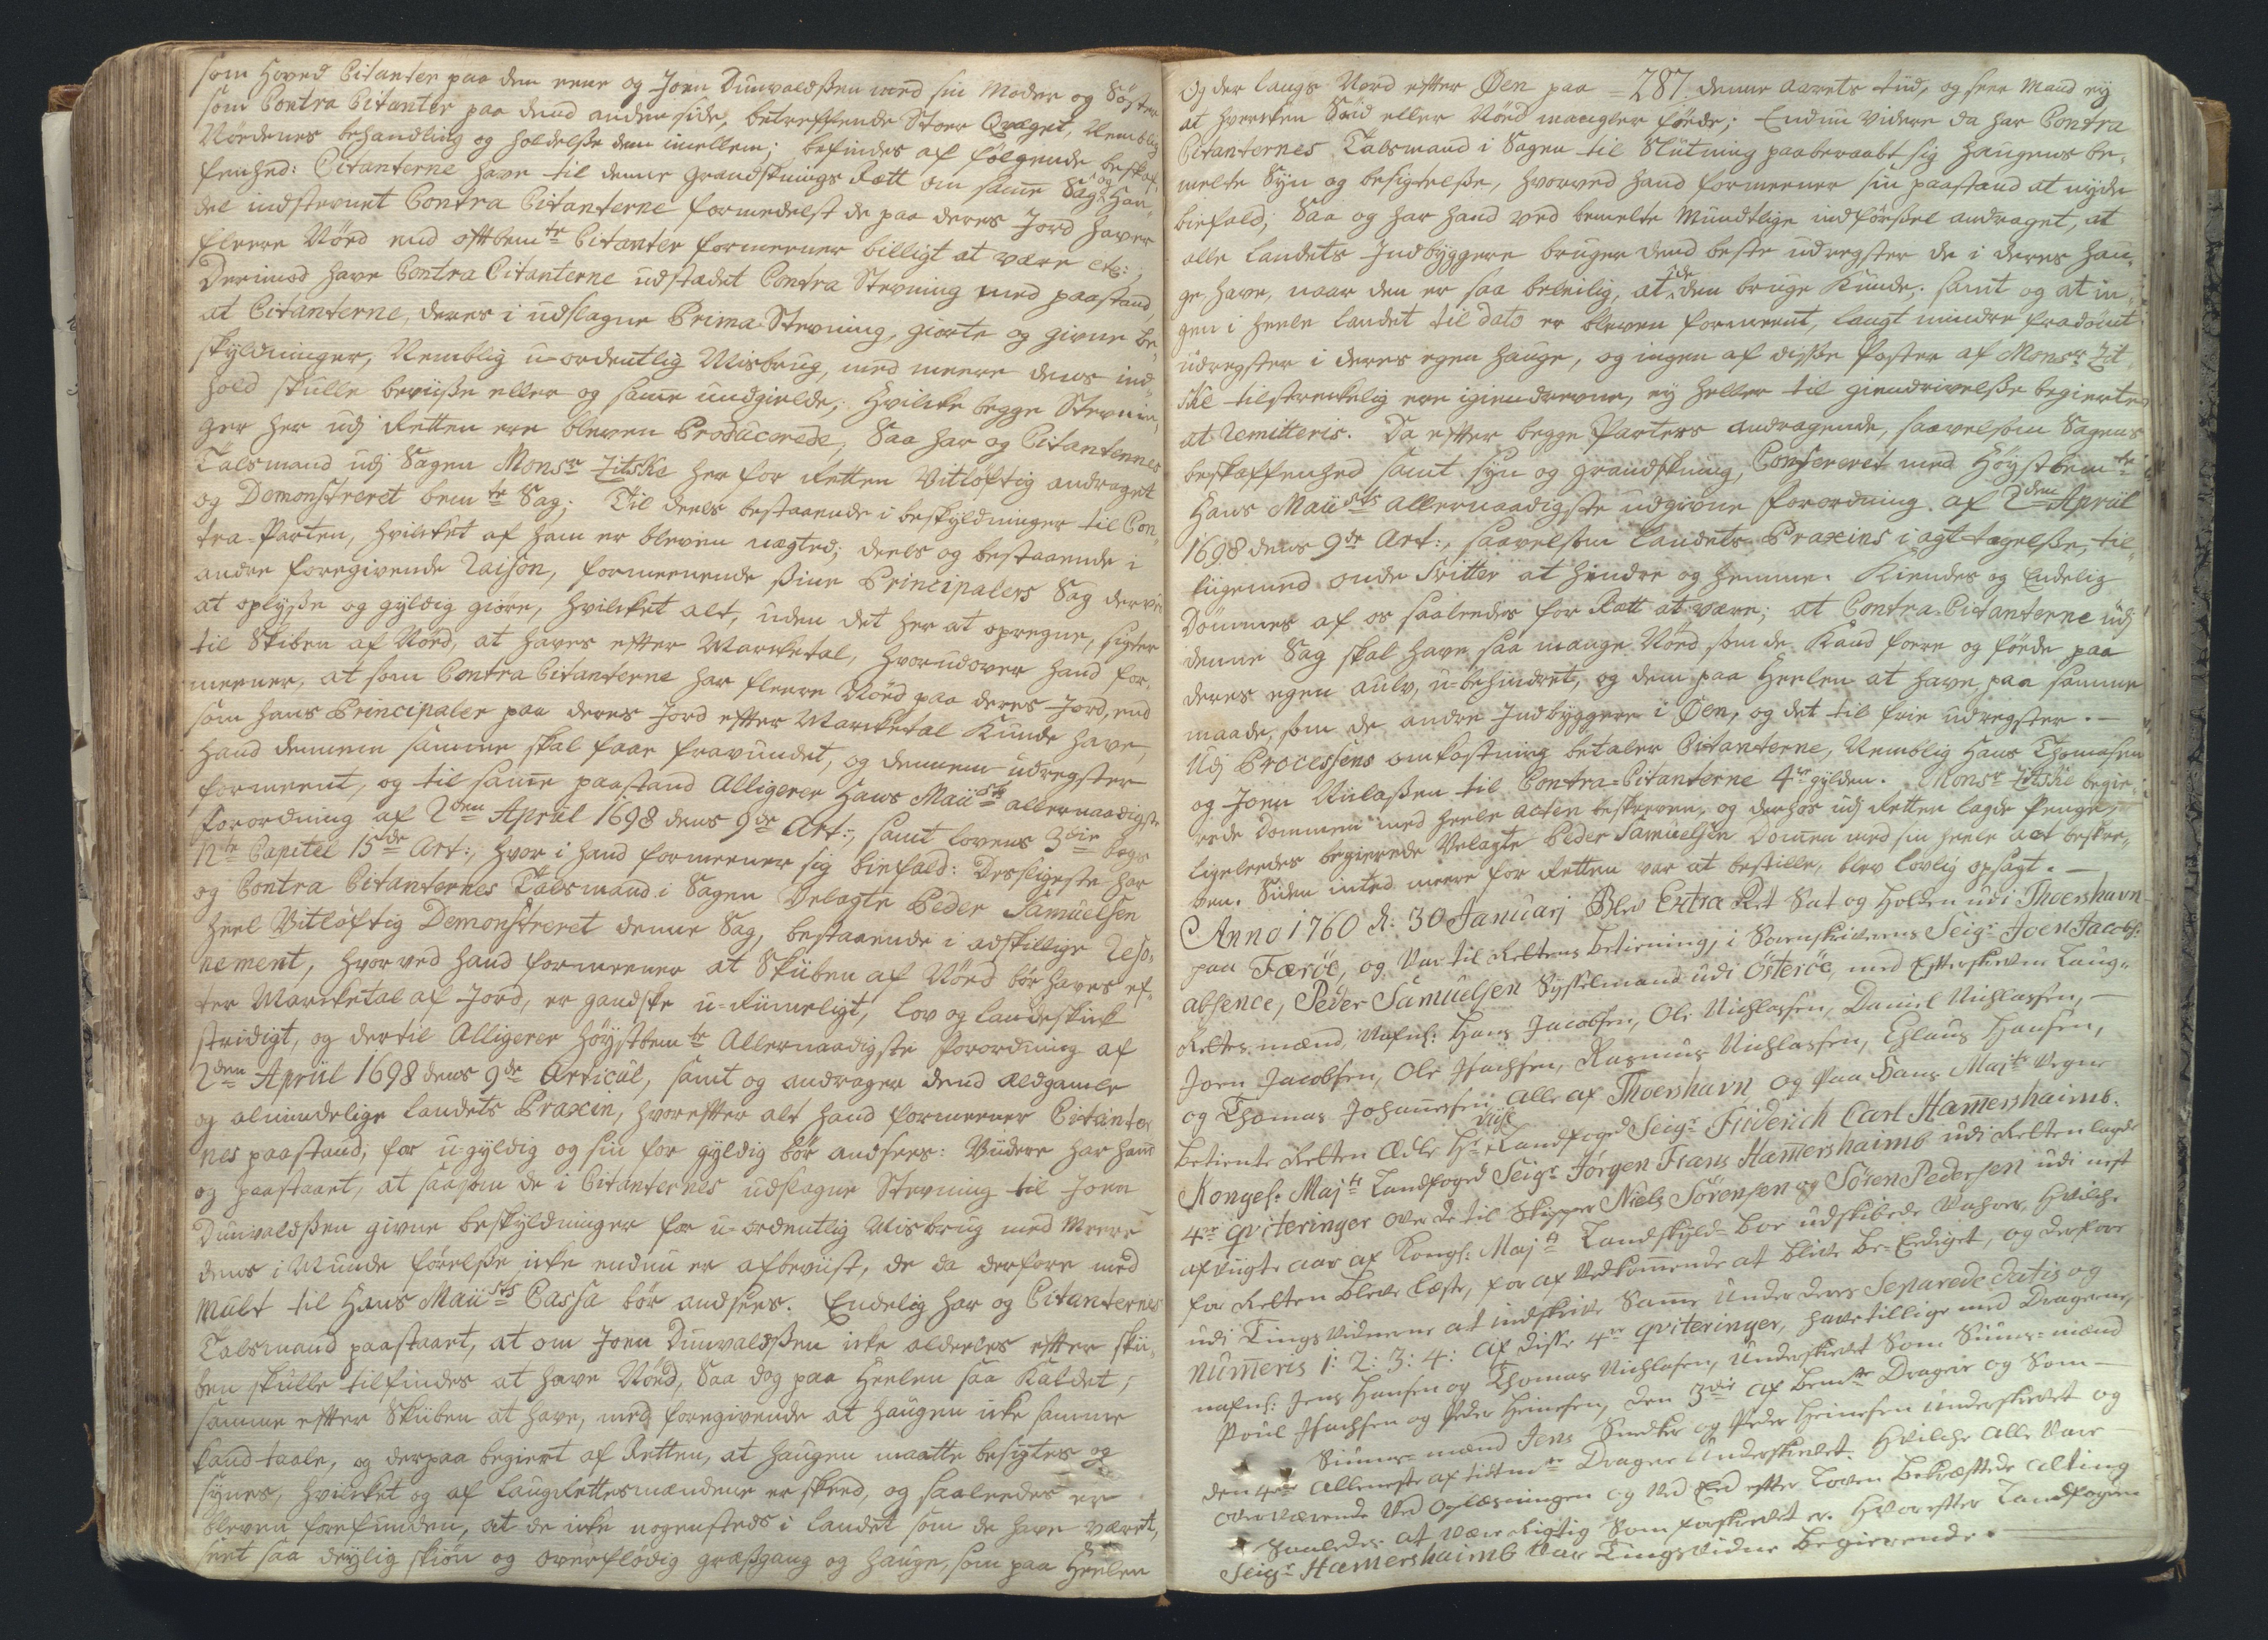 som Hoved Citanter paa den eene og Joen Dunvaldßen med sin Moder og Söster
som Contra Citanter paa dend anden side, betreffende Stoer Qvæget, Nemblig
Nördenes behandling og holdelße dem imellem; befindes af følgende beskaf-
fenhed: Citanterne have til denne grandsknings Rætt om same Sag og Han-
del indstevnet Contra Citanterne formedelst de paa deres Jord haver
fleere Nörd end oftbemte Citanter formeener billigt at være etc:;
Derimod have Contra Citanterne udstædet Contra Stevning med paastand,
at Citanterne, deres i udslagne Prima Stevning, giorte og givne be-
skyldninger, Nemblig u-ordentlig Misbrug, med meere dens ind-
hold skulle beviiße eller og same undgielde; Hvilcke begge Stevnin-
ger her udj Retten ere bleven Producerede, Saa har og Citanternes
Talsmand udj Sagen Monsr Zitske her for Retten Vitløftig andraget
og Demonstreret bemte Sag; Til deels bestaaende i beskyldninger til Con-
tra-Parten, hvilcket af ham er bleven nægted; deels og bestaaende i
andre foregivende Raison, formeenende ßine Principalers Sag derved
at oplyße og gyldig giöre, hvilcket alt, uden det her at opregne, sigter
til Skiben af Nörd, at haves efter Marcketal, hvorudover hand for-
meener, at som Contra Citanterne har fleere Nörd paa deres Jord, end
som hans Principaler paa deres Jord efter Marcketal Kunde have,
hand dennem samme skal faae fravundet, og dennem udregster
formeent, og til same paastand Alligerer Hans Maiists allernaadigste
forordning af 2den Apriil 1698 dens 9de Art:, samt lovens 3die bogs
12te Capitel 15de Art:, hvor i hand formeener sig biefald: Desligeste har
og Contra Citanternes Talsmand i Sagen Velagte Peder Samuelsen
heel Vitløftig Demonstreret denne Sag, bestaaende i adskillige Reso-
nement, hvorved hand formeener at Skiiben af Nörd bör haves ef-
ter Marcketal af Jord, er gandske u-Riimeligt, lov og landeskick
stridigt, og dertil Alligerer høystbemte Allernaadigste forordning af
2den Apriil 1698 dens 9de Articul, samt og andrager dend aldgamle
og almindelige landets Praxin, hvorefter alt hand formeener Citanter-
nes paastand, for u-gyldig og sin for gyldig bör andsees: Viidere har hand
og paastaaet, at saasom de i Citanternes udslagne Stevning til Joen
Dunvaldßen givne beskyldninger for u-ordentlig Misbrug med Meere
dens i Munde førelße icke endnu er afbeviist, de da derfore med
Mult til Hans Maiists Cassa bör andsees. Endelig har og Citanternes
Talsmand paastaaet, at om Joen Dunvaldßen icke alderles efter skii-
ben skulle tilfindes at have Nörd, Saa dog paa Heelen saa Kaldet,
samme efter Skiiben at have, med foregivende at haugen icke samme
kand taale, og derpaa begiert af Retten, at haugen maatte besigtes og
synes, hvilcket og af laugRettesmændene er skeed, og saaleedes er
bleven forefunden, at de icke nogensteds i landet som de have været,
seet saa deylig skiön og overflødig græsgang og hauge, som paa Heelen
og der langs Nord efter Øen paa = 287. denne aarets tiid, og seer Mand ey
at hvercken Siid eller Nörd mangler föede; Endnu videre da har Contra
Citanternes Talsmand i Sagen til Slutning paaberaabt sig haugens be-
melte Syn og besigtelße, hvorved hand formeener sin paastand at nyde
biefald; Saa og har hand ved bemelte Mundtlige indførsel andraget, at
alle landets Indbyggere bruger dend beste udregster de i deres hau-
ge have, naar den er saa beleilig, at de den bruge Kunde; samt og at in-
gen i heele landet til dato er bleven formeent, langt mindre fradömt
udregster i deres egen hauge, og ingen af diße Poster af Monsr Zit-
ske tilstreckelig ere igiendrevne, ey heller til giendrivelße begierte
at Remitteris. Da efter begge Parters andragende, saavelsom Sagens
beskaffenhed samt syn og grandskning, Confereret med Høystbemte
Hans Maiists allernaadigste udgivne forordning af 2den Apriil
1698 dens 9de Art:, saavelsom landets Praxins i agttagelße, til-
ligemed onde Svitter at hindre og hemme. Kiendes og Endelig
Dömmes af os saaledes for Rætt at være; at Contra-Citanterne udj
denne Sag skal have saa mange Nörd som de Kand foere og föede paa
deres egen aulv, u-behindret, og dem paa Heelen at have paa samme
maade, som de andre Indbyggere i Øen, og det til frie udregster.—
Udj Processens omkostning betaler Citanterne, Nemblig Hans Thomasen
og Joen Niilaßen til Contra-Citanterne 4re gylden. Monsr Zitske begie-
rede Dommen med heele acten beskreven, og derhos udj Retten lagde penge,
ligeleedes begierede Velagte Peder Samuelsen Domen med sin heele act beskre-
ven. Siden inted meere for Retten var at bestille, blev lovlig opsagt.—
Anno 1760 d: 30 Januarj Blev Extra Ret Sat og Holden udi Thoershavn
paa Færöe, og Var til Rettens betiening, i Sorenskriverens Seigr Joen Jacobs:
absence, Peder Samuelsen Sysselmand udi Österöe, med Efterskrevne Laug-
Rettes mænd, Nafnl: Hans Jacobsen, Ole Nichlassen, Daniel Nichlassen,—
Joen Jacobsen, Ole Isachsen, Rasmus Nichlassen, Chlaus Hansen,
og Thomas Johannesen alle af Thoershavn, og paa Hans Majts Vegne
betiente Retten Ædle Hr Viice Landfoged Seigr Friderich Carl Hamershaimb.
Kongel: Majts Landfoged Seigr Jörgen Frans Hamershaimb udi Retten lagde
4re qviteringer over de til Skipper Niels Sörensen og Sören Pedersen udi nest
afvigte aar af Kongl: Majts Landskyld-boe udskibede Vahrer, Hvilche
for Retten bleve læste, for af Vedkommende at blive be-Eediget, og derfore
udi Tings Vidnerne at indskrive Same Under deres Separede datis og
numeris 1: 2: 3: 4: Af disse 4re qviteringer, have tillige med Dragerne,
nafnl: Jens Hansen og Thomas Nichlasen, Underskrevet Som Siuns-mænd
Poul Isachsen og Peder Heinesen, den 3die af bemte Dragere og Som—
Siuns-mænd Jens Snedker og Peder Heinesen underskrevet og
den 4de alleneste af tidtmte Dragere underskrevet. Hvilche alle Vare
overværende Ved Oplæsningen og Ved Eed efter Loven bekræftede alting
Saaledes at være Rigtig Som forskrevet er. Hvorefter Landfogden
Seigr Hamershaimb Var Tingsvidne begierende.